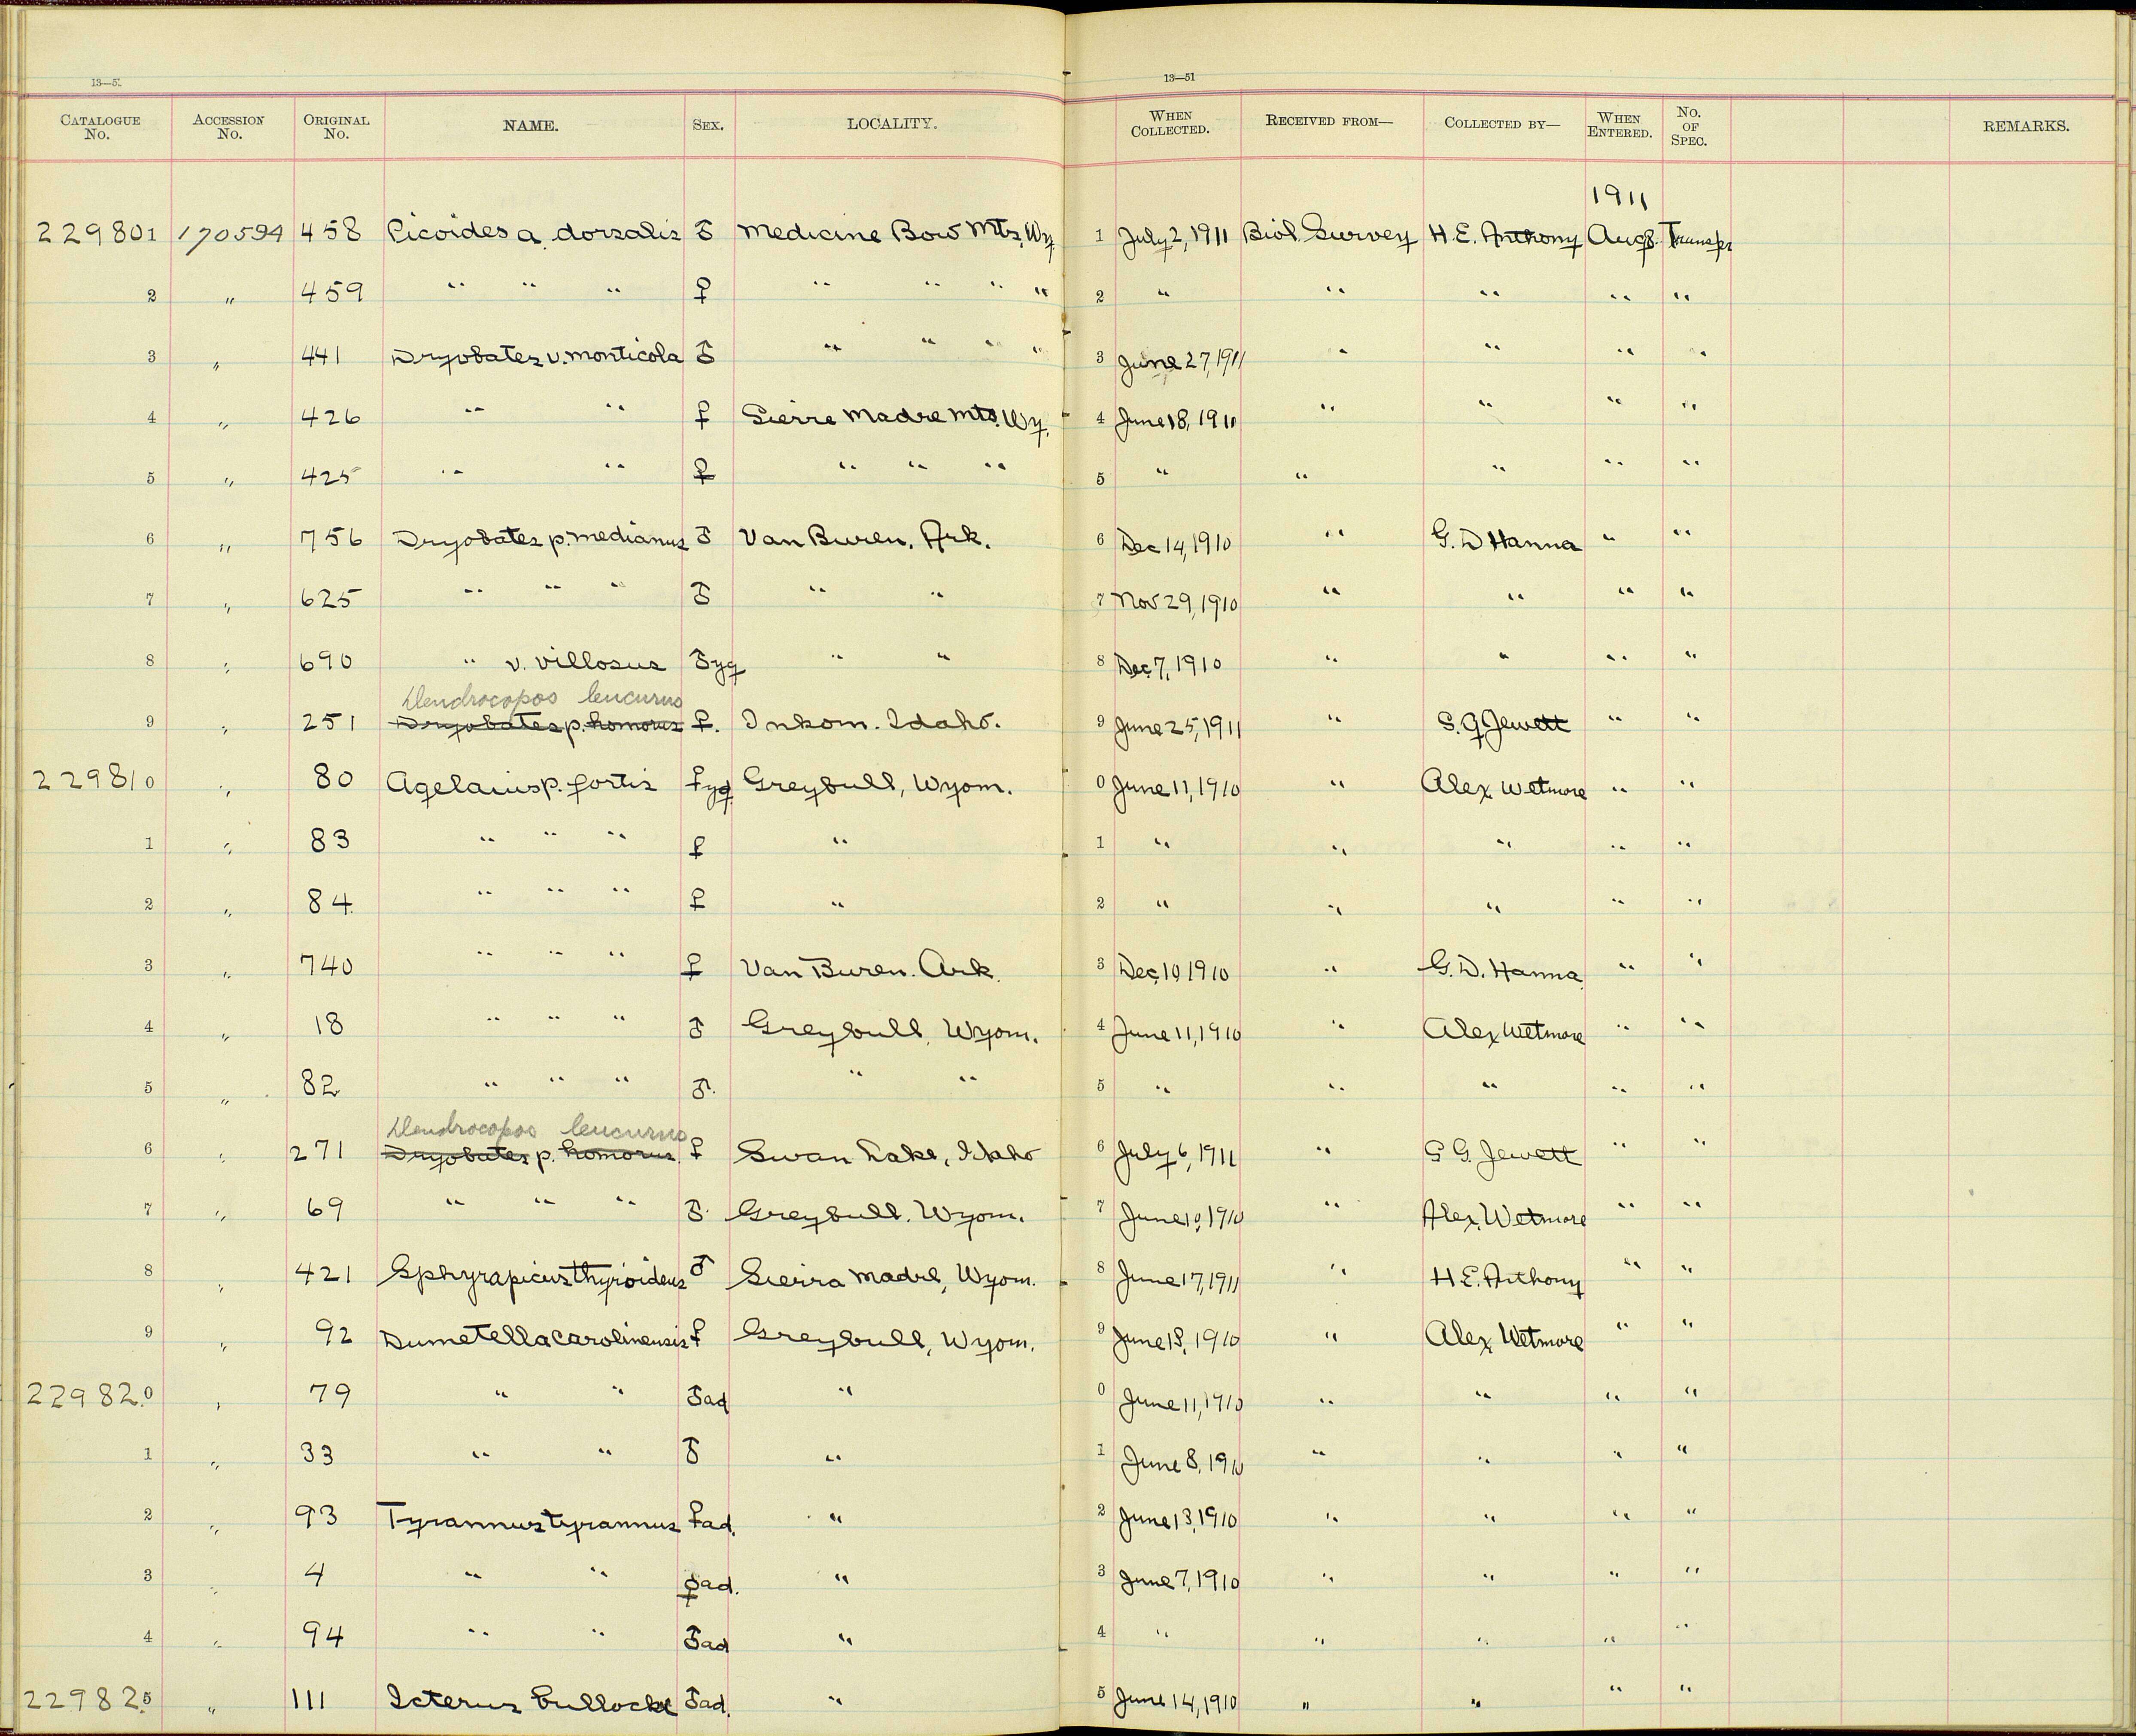 13—51
CATALOGUE No. ACCESSION No. ORIGINAL No. NAME. SEX. LOCALITY. WHEN COLLECTED. RECEIVED FROM— COLLECTED BY— WHEN ENTERED. NO. OF SPEC. REMARKS.
1911
229801 170594 458 Picoides a. dorsalis ♂ Medicine Bow Mts, Wy. 1 July 2, 1911 Biol. Survey H. E. Anthony Aug 8. Transfer
2 " 459 " " " ♀ " " " " 2 " " " " "
3 " 441 Dryobates v. monticola ♂ " " " " 3 June 27, 1911 " " " "
4 " 426 " " ♀ Sierre Madre Mts. Wy. 4 June 18, 1911 " " " "
5 " 425 " " ♀ " " " 5 " " " " "
6 " 756 Dryobates p. medianus ♂ Van Buren, Ark. 6 Dec 14, 1910 " G. D Hanna " "
7 " 625 " " " ♂ " " 7 Nov 29, 1910 " " " "
8 " 690 " v. villosus ♂ yg " " 8 Dec 7, 1910 " " " "
Dendrocopos leucurus
9 " 251 Dryobates p. homorus ♀. Inkom. Idaho. 9 June 25, 1911 " S. G Jewett " "
229810 " 80 Agelaius p. fortis ♀ yg Greybull, Wyom. 0 June 11, 1910 " Alex Wetmore " "
1 " 83 " " " ♀ " 1 " " " " "
2 " 84 " " " ♀ " 2 " " " " "
3 " 740 " " " ♀ Van Buren. Ark. 3 Dec 10 1910 " G. D. Hanna " "
4 " 18 " " " ♂ Greybull, Wyom. 4 June 11, 1910 " Alex Wetmore " "
5 " 82 " " " ♂. " " 5 " " " " "
Dendrocopos leucurus
6 " 271 Dryobates p. homorus. ♀ Swan Lake, Idaho 6 July 6, 1911 " S G. Jewett " "
7 " 69 " " " ♂. Greybull. Wyom. 7 June 10, 1910 " Alex. Wetmore " "
8 " 421 Sphyrapicus thyroideus ♂ Sierra Madre, Wyom. 8 June 17, 1911 " H E. Anthony " "
9 " 92 Dumetella carolinensis ♀ Greybull, Wyom. 9 June 13, 1910 " Alex Wetmore " "
229820 " 79 " " ♂ ad " 0 June 11, 1910 " " " "
1 " 33 " " ♂ " 1 June 8, 1910 " " " "
2 " 93 Tyrannus tyrannus ♀ ad. " 2 June 13, 1910 " " " "
3 " 4 " " ♀ ad. " 3 June 7, 1910 " " " "
4 " 94 " " ♂ ad " 4 " " " " "
229825 " 111 Icterus bullocki ♂ ad. " 5 June 14, 1910 " " " "